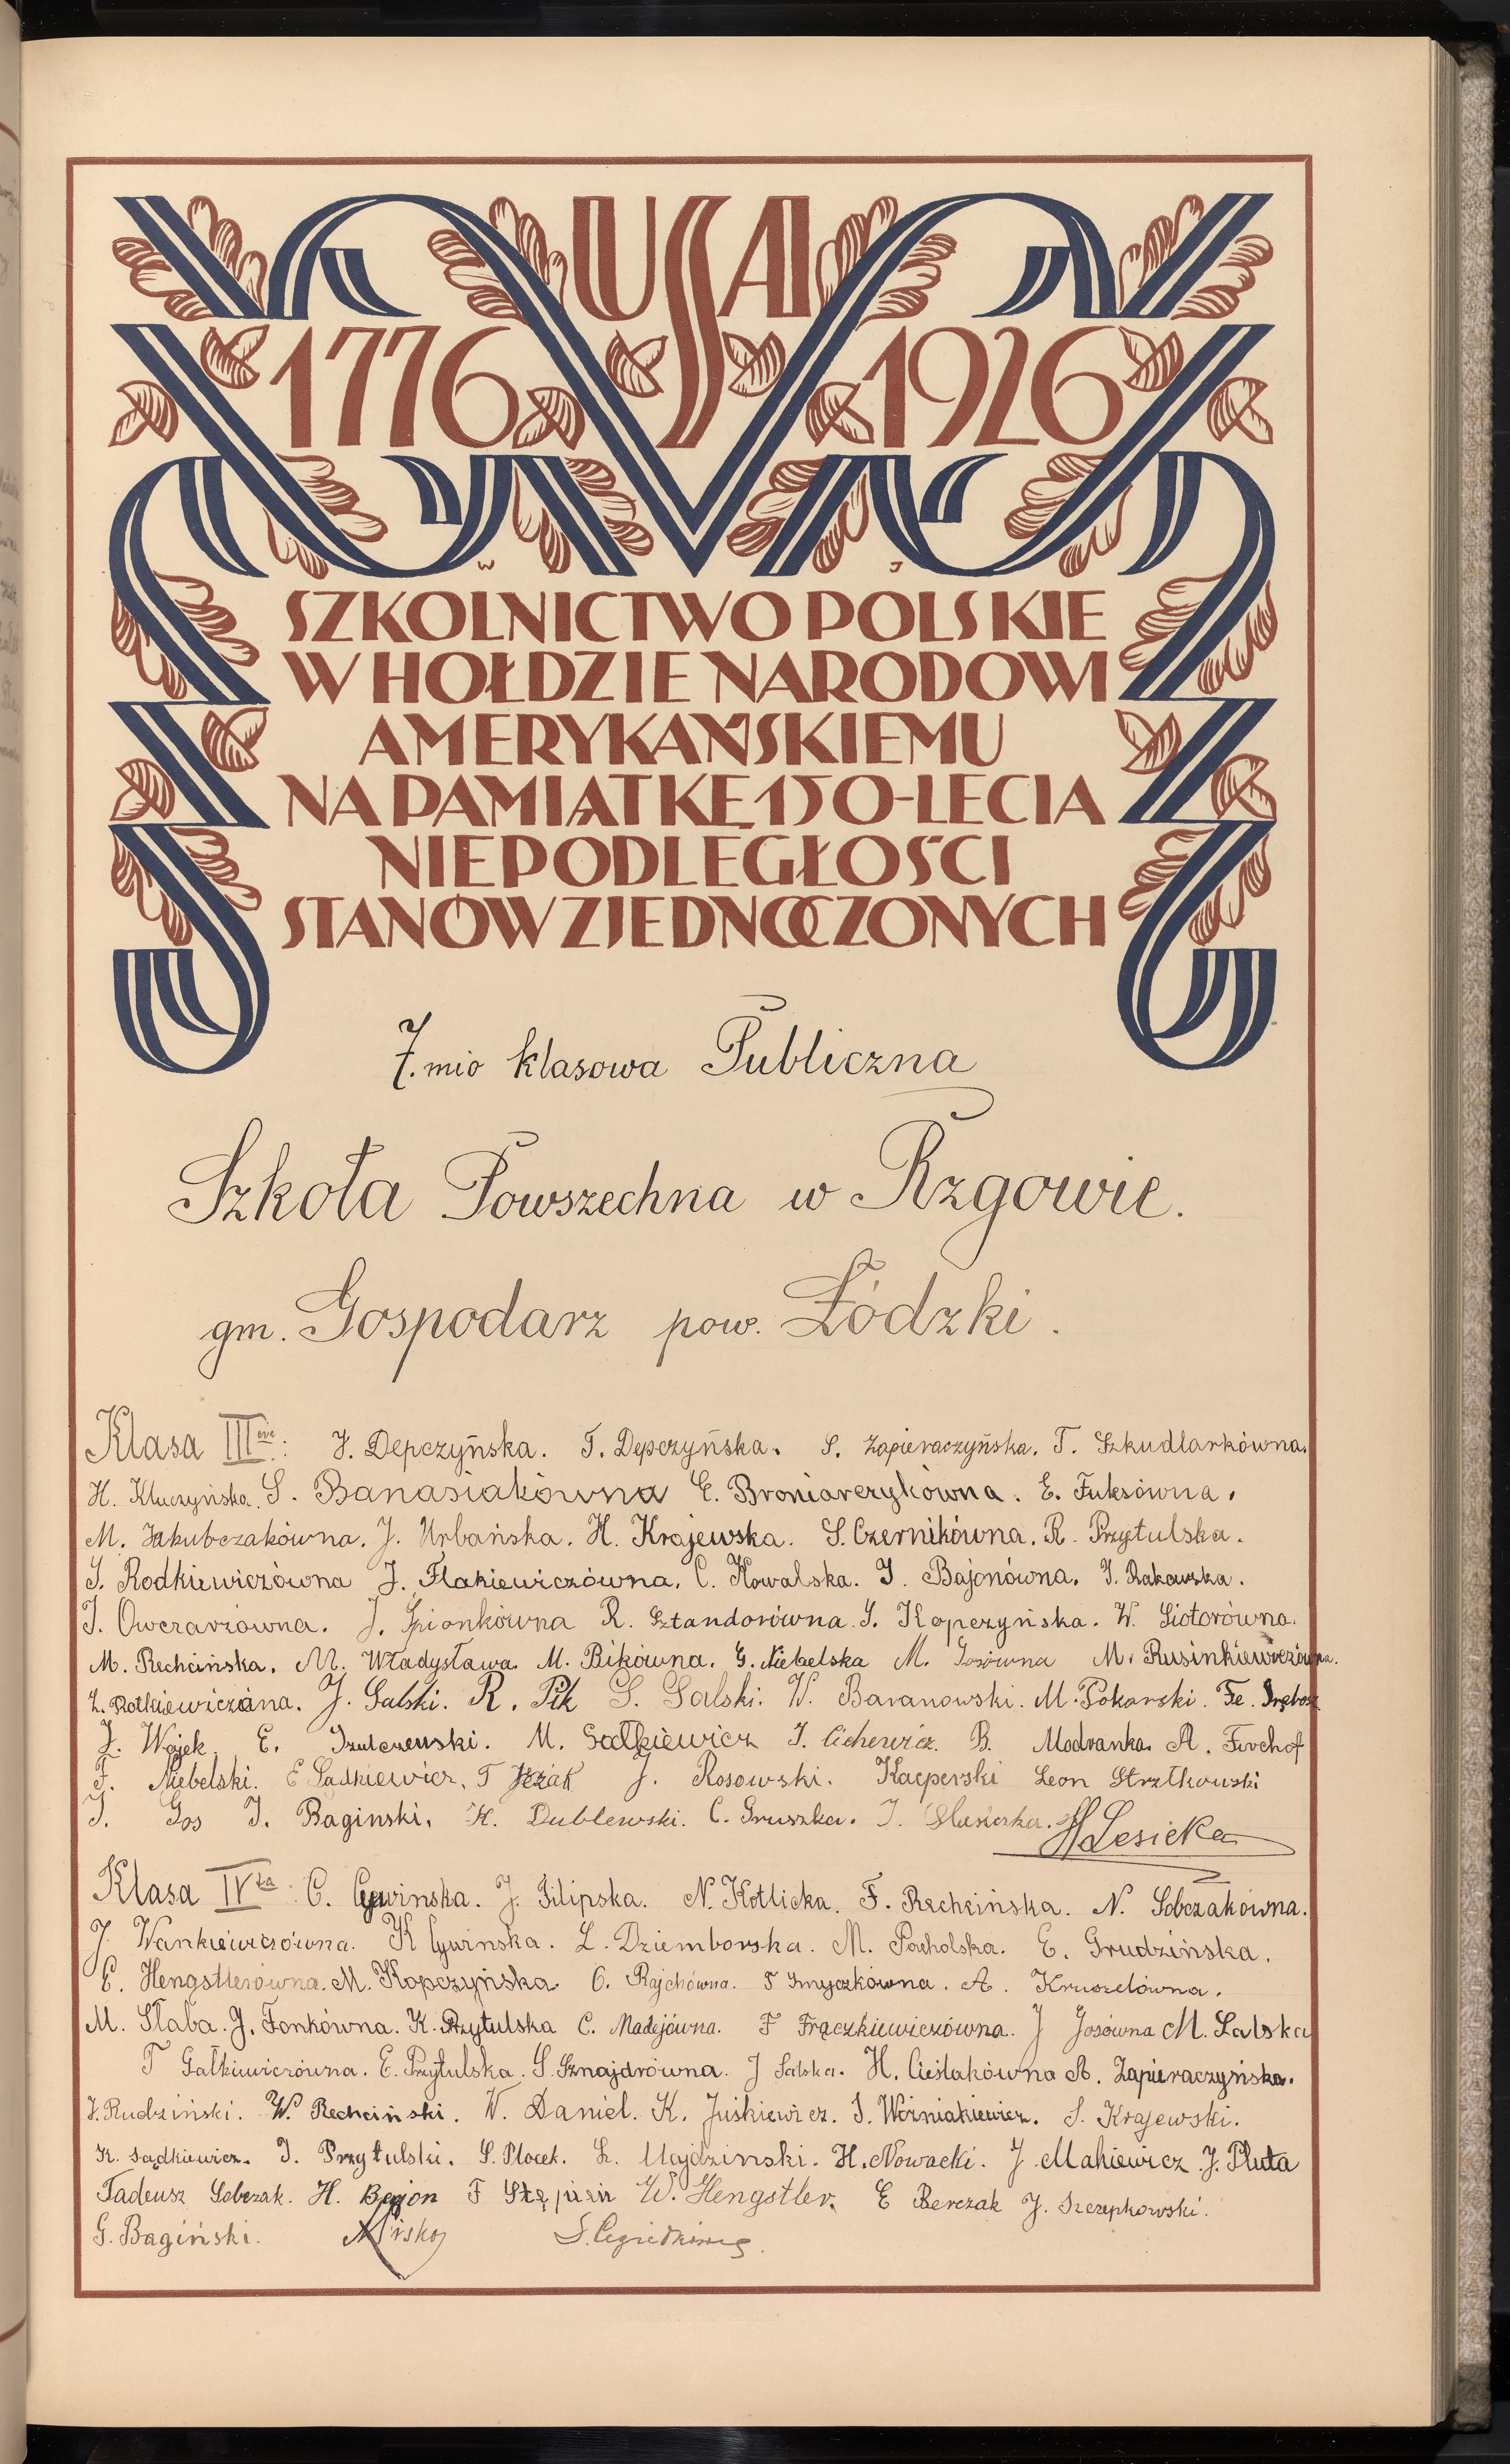 USA
1776 1926
W J
SZKOLNICTWO POLSKIE
W HOŁDZIE NARODOWI
AMERYKAŃSKIEMU
NA PAMIĄTKĘ 150-LECIA
NIEPODLEGŁOŚCI
STANÓW ZJEDNOCZONYCH
7.mio klasowa Publiczna
Szkoła Powszechna w Rzgowie.
gm. Gospodarz pow. Łódzki.
Klasa III J. Depczyńska. T. Depczyńska. S. Zapieraczyńska. T. Szkudlarkówna.
H. Kluczyńska. S. Banasiakówna E. Broniarczykówna. E. Fuksówna.
M. Jakubczakówna. J. Urbańska. H. Krajewska. S. Czernikówna. R. Przytulska.
S. Rodkiewiczówna J. Flakiewiczówna. C. Kowalska. J. Bajonówna. J. Rakowska.
J. Owczarzówna. J. Spionkówna R. Sztandorówna. S. Kopczyńska. W. Siotorówna.
M. Rechcińska. M. Władysława. M. Bikówna. G. Niebelska M. Josówna M. Rusinkiewiczówna.
J. Salski. R. Pik S. Salski. W. Baranowski. M. Pokorski. Fe.
J. Wójek E. M. Sałkiewicz J. Cichewicz. B. Modranka. A. Firchof
F. Niebelski. E Sadkiewicz. T Jeżak J. Rosowski. Kacperski Leon Strzłkowski
J. Gos J. Baginski. K. Dublewski. C. Gruszka. J. HLesicka
Klasa IV ta C. Cywinska. J. Filipska. N. Kotlicka. F. Rechcińska. N. Sobczakówna.
J. Wankiewiczówna. K Cywinska. L. Dziemborska. M. Pacholska. E. Grudzińska.
E. Hengstlerówna. M. Kopczyńska O. Rajchówna. F Smyczkówna. A. Kruszelówna.
M. Słaba. J. Fonkówna. K. Przytulska C. Madejówna. F Frączkiewiczówna. J Josówna M. Salska
T Gałkiewiczówna. E. Przytulska. S. Sznajdrówna. J Salska. H. Cieślakówna A. Zapieraczyńska.
J. Rudziński. W. Rechciński. W. Daniel. K. Juśkiewicz. J. Woźniakiewicz. S. Krajewski.
K. Sądkiewicz. J. Przytulski. S. Płocek. L. Ujdzinski. H. Nowacki. J. Makiewicz J. Pluta
Tadeusz Sobczak. H. Bajon F Stępień W. Hengstler. E Berczak J. Szczepkowski.
G. Bagiński.